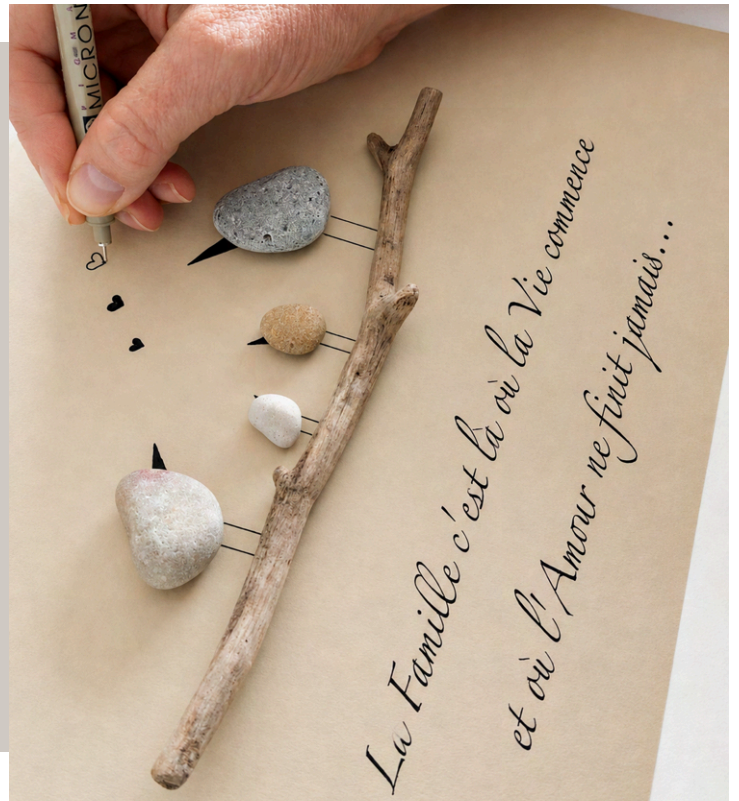 MICRON
La Famille c'est là où la Vie commence
et où l'Amour ne finit jamais...